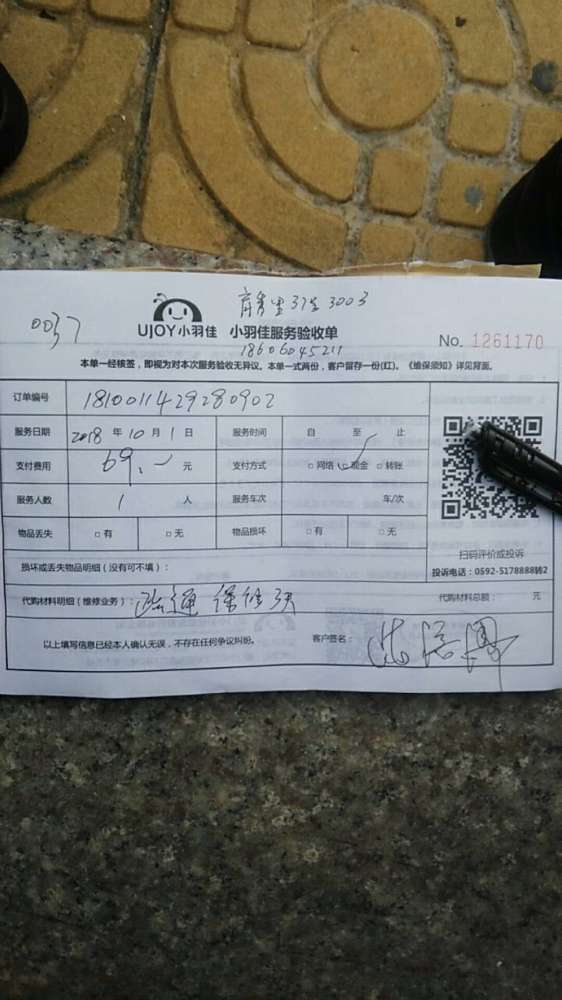 0037
UJOY小羽佳 小羽佳服务验收单
18606045211
No. 1261170
本单一经核签，即视为对本次服务验收无异议。本单一式两份，客户留存一份(红)。《维保须知》详见背面。
订单编号 1810011429280902
服务日期 2018 年 10 月 1 日 服务时间 自 至 止
支付费用 69. 元 支付方式 □网络 □现金 □转账
服务人数 1 人 服务车次 车/次
物品丢失 □有 □无 物品损坏 □有 □无
扫码评价或投诉
投诉电话：0592-5178888转2
损坏或丢失物品明细（没有可不填）：
代购材料明细（维修业务）： 疏通 保修 天
代购材料总额： 元
以上填写信息已经本人确认无误，不存在任何争议纠纷。 客户签名：